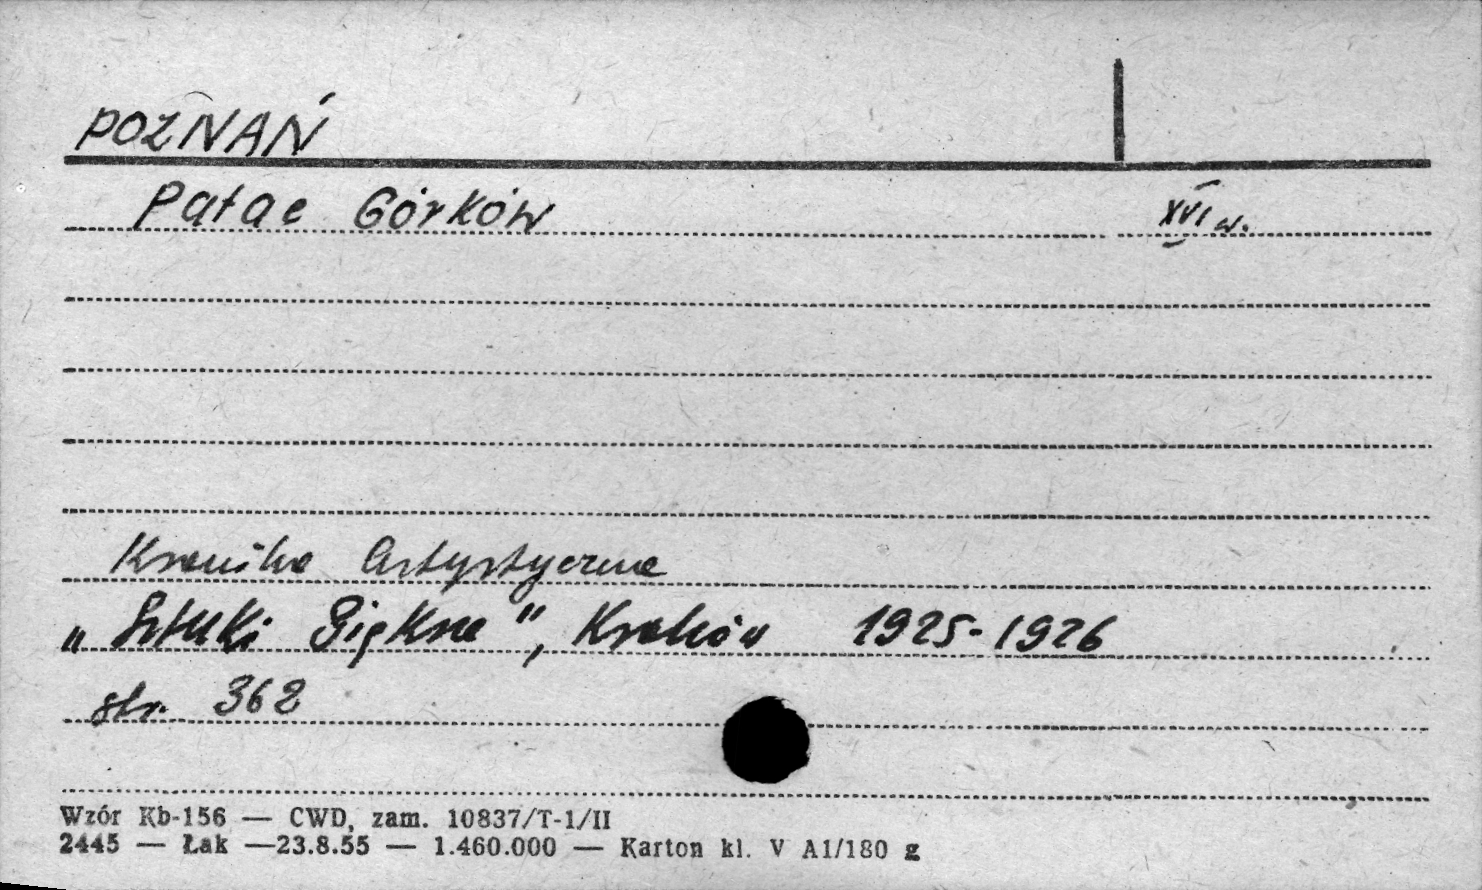 POZNAŃ
Pałac Górków XVI w.
Kronika Artystyczna
„Sztuki Piękne", Kraków 1925-1926
str. 362
Wzór Kb-156 — CWD, zam. 10837/T-1/II
2445 — Łak —23.8.55 — 1.460.000 — Karton kl. V A1/180 g